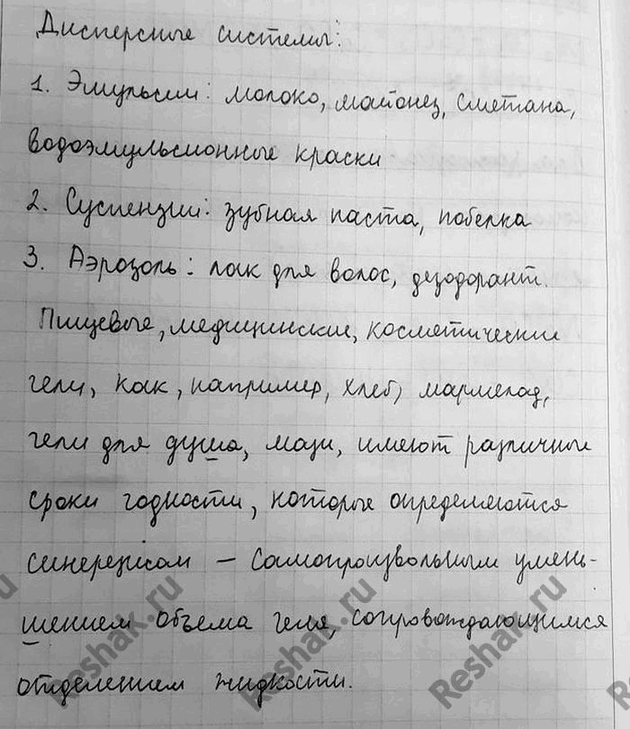 Дисперсные системы:
1. Эмульсии: молоко, майонез, сметана,
водоэмульсионные краски
2. Суспензии: зубная паста, побелка
3. Аэрозоль: лак для волос, дезодорант.
Пищевые, медицинские, косметические
гели, как, например, хлеб, мармелад,
гели для душа, мази, имеют различные
сроки годности, которые определяются
синерезисом – самопроизвольным умень-
шением объема геля, сопровождающимся
отделением жидкости.
Reshak.ru
Reshak.ru
Reshak.ru